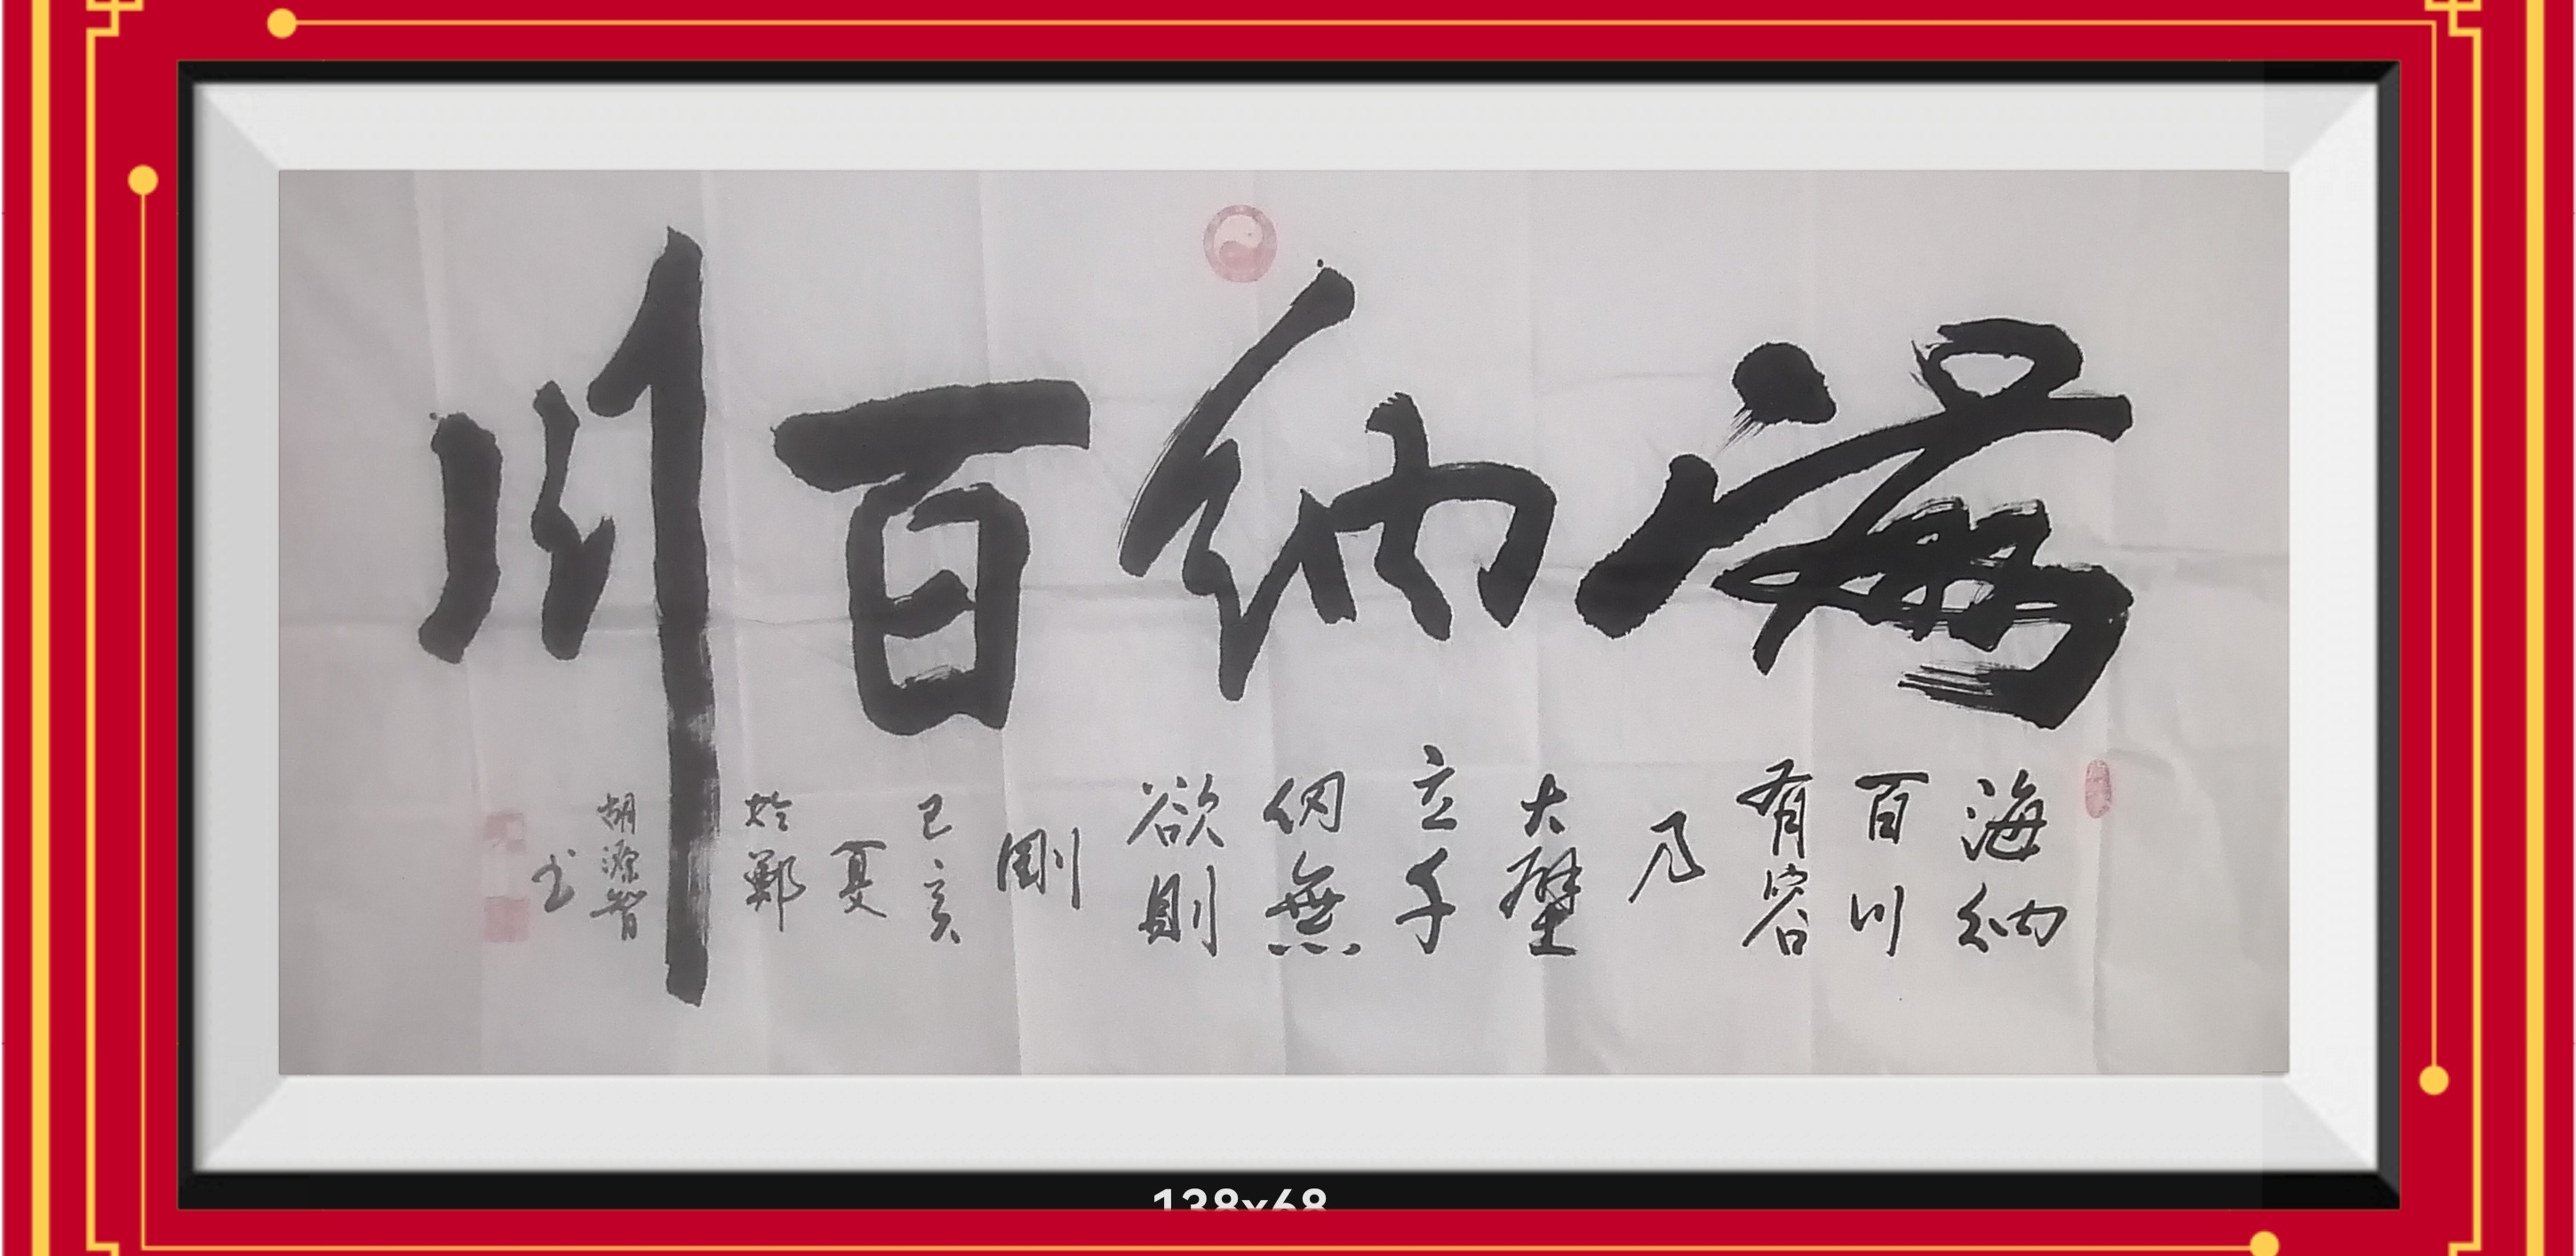 海納百川
海納
百川
有容
乃
大壁
立千
仞無
欲則
剛
己亥
夏
於鄭
胡源智
书
138x68